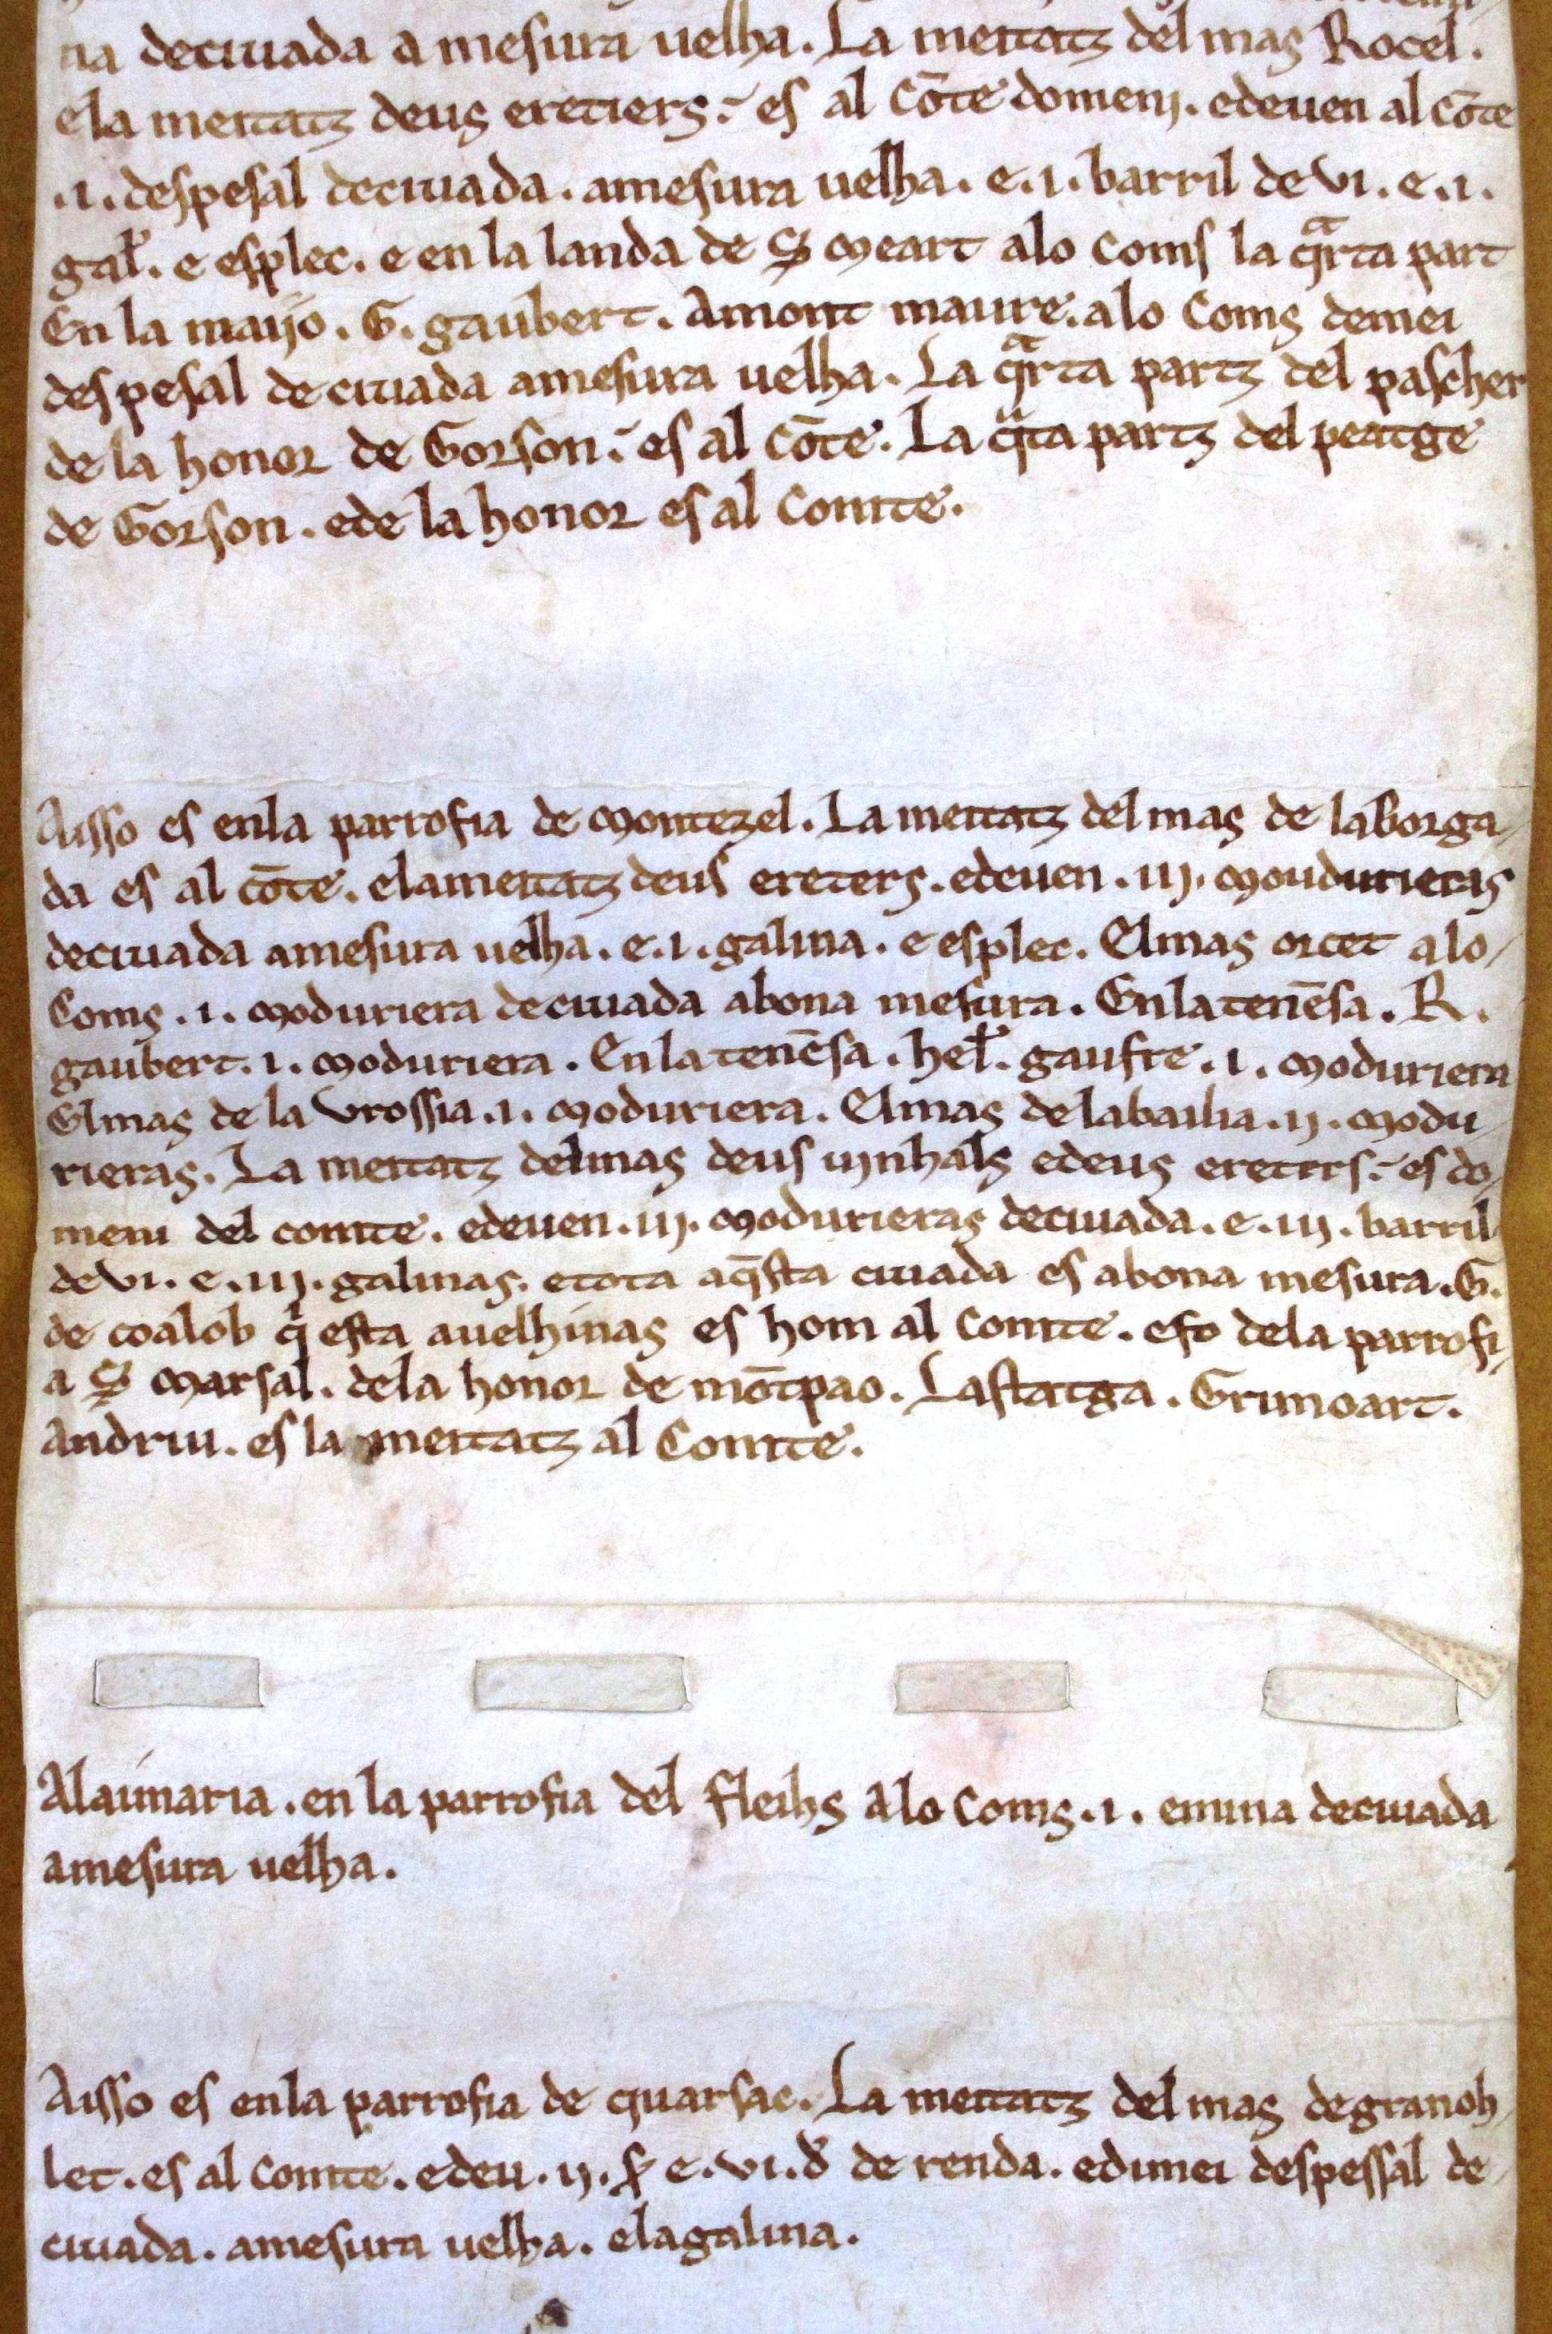 na deciuada a mesura uelha. La meitatz del mas Rocel.
ela meitatz deus eretiers. es al Cōte domenj. edeuen al cōte
.i. despesal deciuada. amesura uelha. e. i. barril de vi. e. i.
gal̄. e esplec. e en la landa de S̄ Meart alo Coms la qᵃrta part
En la maijo. G. gaubert. Amont maure. alo Coms demei
despesal de ciuada amesura uelha. La qᵃrta partz del pascher
de la honor de Gorson. es al Cōte. La qᵃta partz del peatge
de Gorson. ede la honor es al Comte.
Aisso es enla parrofia de Montezel. La meitatz del mas de laborga-
da es al cōte. elameitatz deus ereters. edeuen. iij. Moudurieras
deciuada amesura uelha. e. i. galina. e esplec. Elmas orcet alo
Coms. i. Moduriera deciuada abona mesura. Enlatenēsa. R.
gaubert. i. Moduriera. Enlatenēsa. hel̄. gaufre. i. Moduriera
Elmas de la Vrossia. i. Moduriera. Elmas delabailia. ij. Modu
rieras. La meitatz delmas deus edeus ereters. es do-
meni del comte. edeuen. iij. Modurieras deciuada. e. iij. barril
de vi. e. iij. galinas. etota aq̄sta ciuada es abona mesura. G.
de coalob q̄ esta auelhinas es hom al Comte. efo dela parrofi-
a S̄ Marsal. dela honor de mōtpao. Lastatga. Grimoart.
Andriu. es la meitatz al Comte.
Alaimaria. en la parrofia del fleihs alo Coms. i. emina deciuada
amesura uelha.
Aisso es enla parrofia de quarsac. La meitatz del mas degranoh-
let. es al Comte. edeu. ij. s̄ e. vi. d̄ de renda. edimei despessal de-
ciuada. amesura uelha. elagalina.